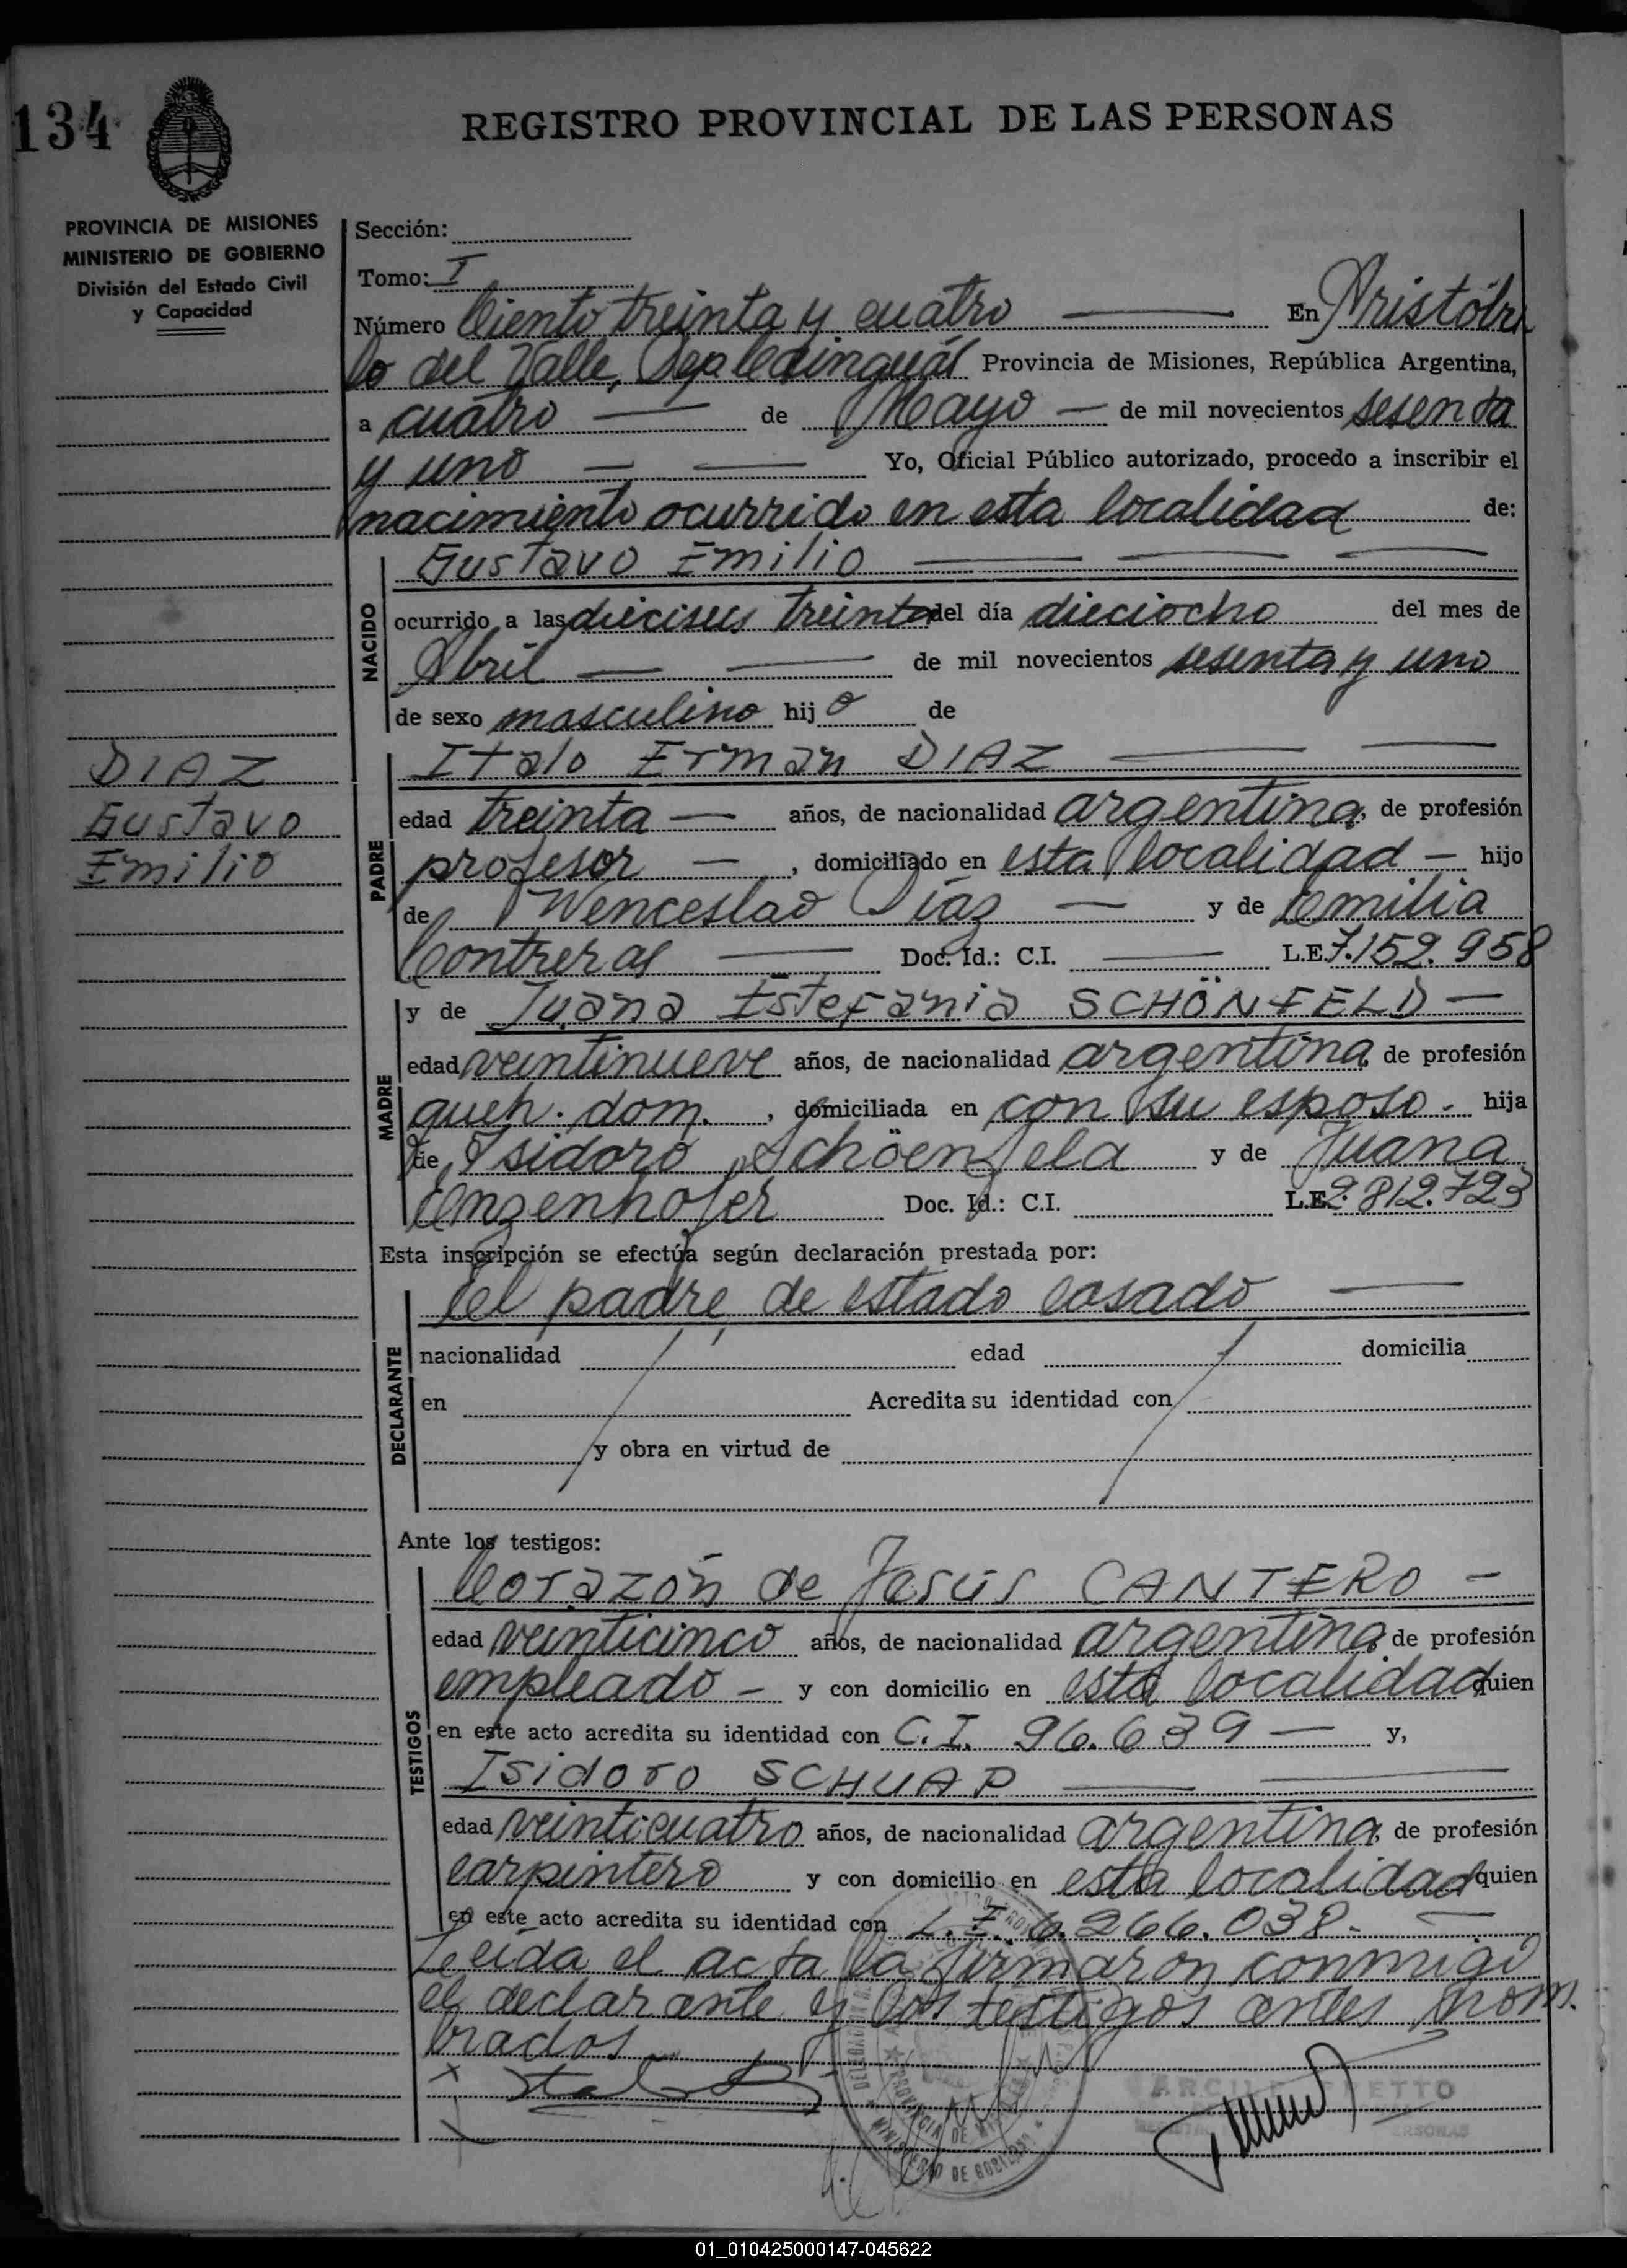 134
REGISTRO PROVINCIAL DE LAS PERSONAS
PROVINCIA DE MISIONES
MINISTERIO DE GOBIERNO
División del Estado Civil
y Capacidad
Sección:
Tomo: I
Número Ciento treinta y cuatro En Aristóbu
lo del Valle, Provincia de Misiones, República Argentina,
a cuatro de Mayo de mil novecientos sesenta
y uno Yo, Oficial Público autorizado, procedo a inscribir el
nacimiento ocurrido en esta localidad de:
Gustavo Emilio
NACIDO
ocurrido a las dieciseis treinta del día dieciocho del mes de
Abril de mil novecientos sesenta y uno
de sexo masculino hijo de
DIAZ
Gustavo
Emilio
PADRE
Italo Erman DIAZ
edad treinta años, de nacionalidad argentina, de profesión
profesor, domiciliado en esta localidad hijo
de Wenceslao Díaz y de Emilia
Contreras Doc. Id.: C.I. L.E. 7.152.958
MADRE
y de Juana Estefania SCHÖNFELD
edad veintinueve años, de nacionalidad argentina de profesión
queh. dom., domiciliada en con su esposo. hija
de Isidoro Schöenfeld y de Juana
Enzenhofer Doc. Id.: C.I. L.E. 2.812.723
Esta inscripción se efectúa según declaración prestada por:
DECLARANTE
El padre, de estado casado
nacionalidad edad domicilia
en Acredita su identidad con
y obra en virtud de
Ante los testigos:
TESTIGOS
Corazón de Jesús CANTERO
edad veinticinco años, de nacionalidad argentina de profesión
empleado y con domicilio en esta localidad quien
en este acto acredita su identidad con C.I. 96.639 y,
Isidoro SCHUAP
edad veinticuatro años, de nacionalidad argentina, de profesión
carpintero y con domicilio en esta localidad quien
en este acto acredita su identidad con L.E. 6.266.038.
Leida el acta la firmaron conmigo
el declarante y los testigos antes nom.
brados
PROVINCIA DE MISIONES
MINISTERIO DE GOBIERNO
01_010425000147-045622